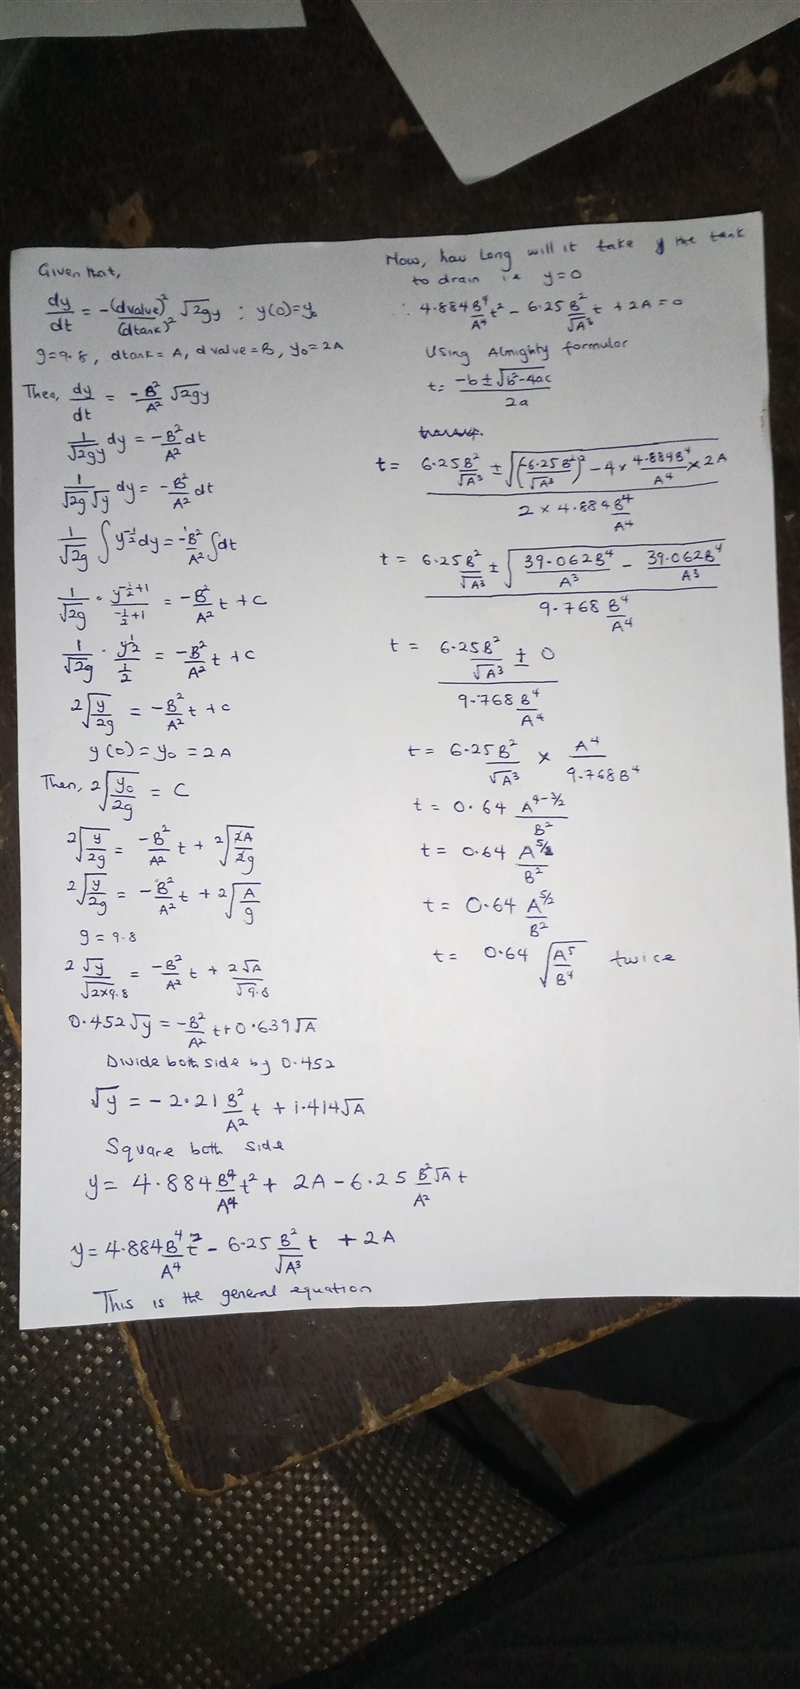 Given that,
dy/dt = -(dvalve)²/(dtank)² √2gy : y(0)=y₀
g=9.8, dtank = A, dvalve = B, y₀ = 2A
Then, dy/dt = -B²/A² √2gy
1/√2gy dy = -B²/A² dt
1/√2g√y dy = -B²/A² dt
1/√2g ∫ y^-½ dy = -B²/A² ∫dt
1/√2g · y^(-½+1)/(-½+1) = -B²/A² t + C
1/√2g · y^½/½ = -B²/A² t + C
2√(y/2g) = -B²/A² t + C
y(0) = y₀ = 2A
Then, 2√(y₀/2g) = C
2√(y/2g) = -B²/A² t + 2√(2A/2g)
2√(y/2g) = -B²/A² t + 2√(A/g)
g = 9.8
2√y/√2×9.8 = -B²/A² t + 2√A/√9.8
0.452√y = -B²/A² t + 0.639√A
Divide both side by 0.452
√y = -2.21 B²/A² t + 1.414√A
Square both side
y = 4.884 B⁴/A⁴ t² + 2A - 6.25 B²√A/A² t
y = 4.884 B⁴/A⁴ t² - 6.25 B²/√A³ t + 2A
This is the general equation
Now, how long will it take y the tank
to drain i.e y=0
∴ 4.884 B⁴/A⁴ t² - 6.25 B²/√A³ t + 2A = 0
Using Almighty formular
t = (-b ± √b²-4ac)/2a
t = (6.25B²/√A³ ± √((-6.25B²/√A³)² - 4 × 4.884B⁴/A⁴ × 2A))/(2 × 4.884 B⁴/A⁴)
t = (6.25B²/√A³ ± √(39.062B⁴/A³ - 39.062B⁴/A³))/(9.768 B⁴/A⁴)
t = (6.25B²/√A³ ± 0)/(9.768 B⁴/A⁴)
t = 6.25B²/√A³ × A⁴/9.768B⁴
t = 0.64 A^(4-3/2)/B²
t = 0.64 A^5/2/B²
t = 0.64 A^5/2/B²
t = 0.64 √(A⁵/B⁴) twice